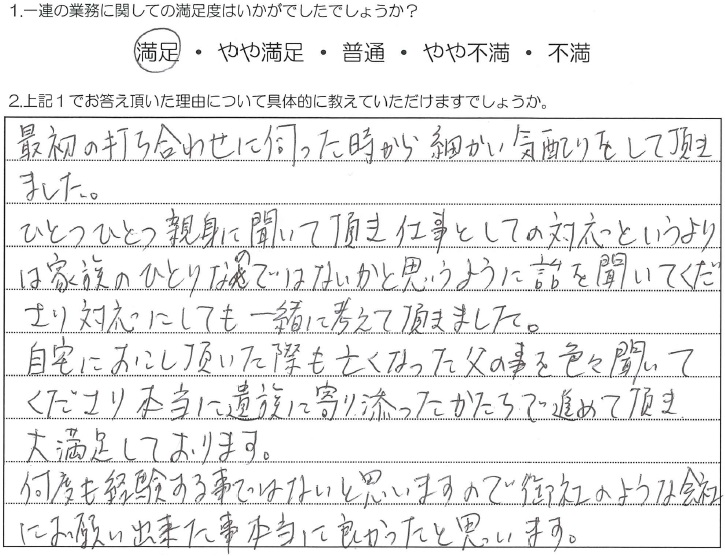 1.一連の業務に関しての満足度はいかがでしたでしょうか？
満足 ・ やや満足 ・ 普通 ・ やや不満 ・ 不満
2.上記１でお答え頂いた理由について具体的に教えていただけますでしょうか。
最初の打ち合わせに伺った時から細かい気配りをして頂き
ました。
ひとつひとつ親身に聞いて頂き仕事としての対応というより
は家族のひとりなのではないかと思うように話を聞いてくだ
さり対応にしても一緒に考えて頂きました。
自宅におこし頂いた際も亡くなった父の事を色々聞いて
くださり本当に遺族に寄り添ったかたちで進めて頂き
大満足しております。
何度も経験する事ではないと思いますので御社のような会社
にお願い出来た事本当に良かったと思います。